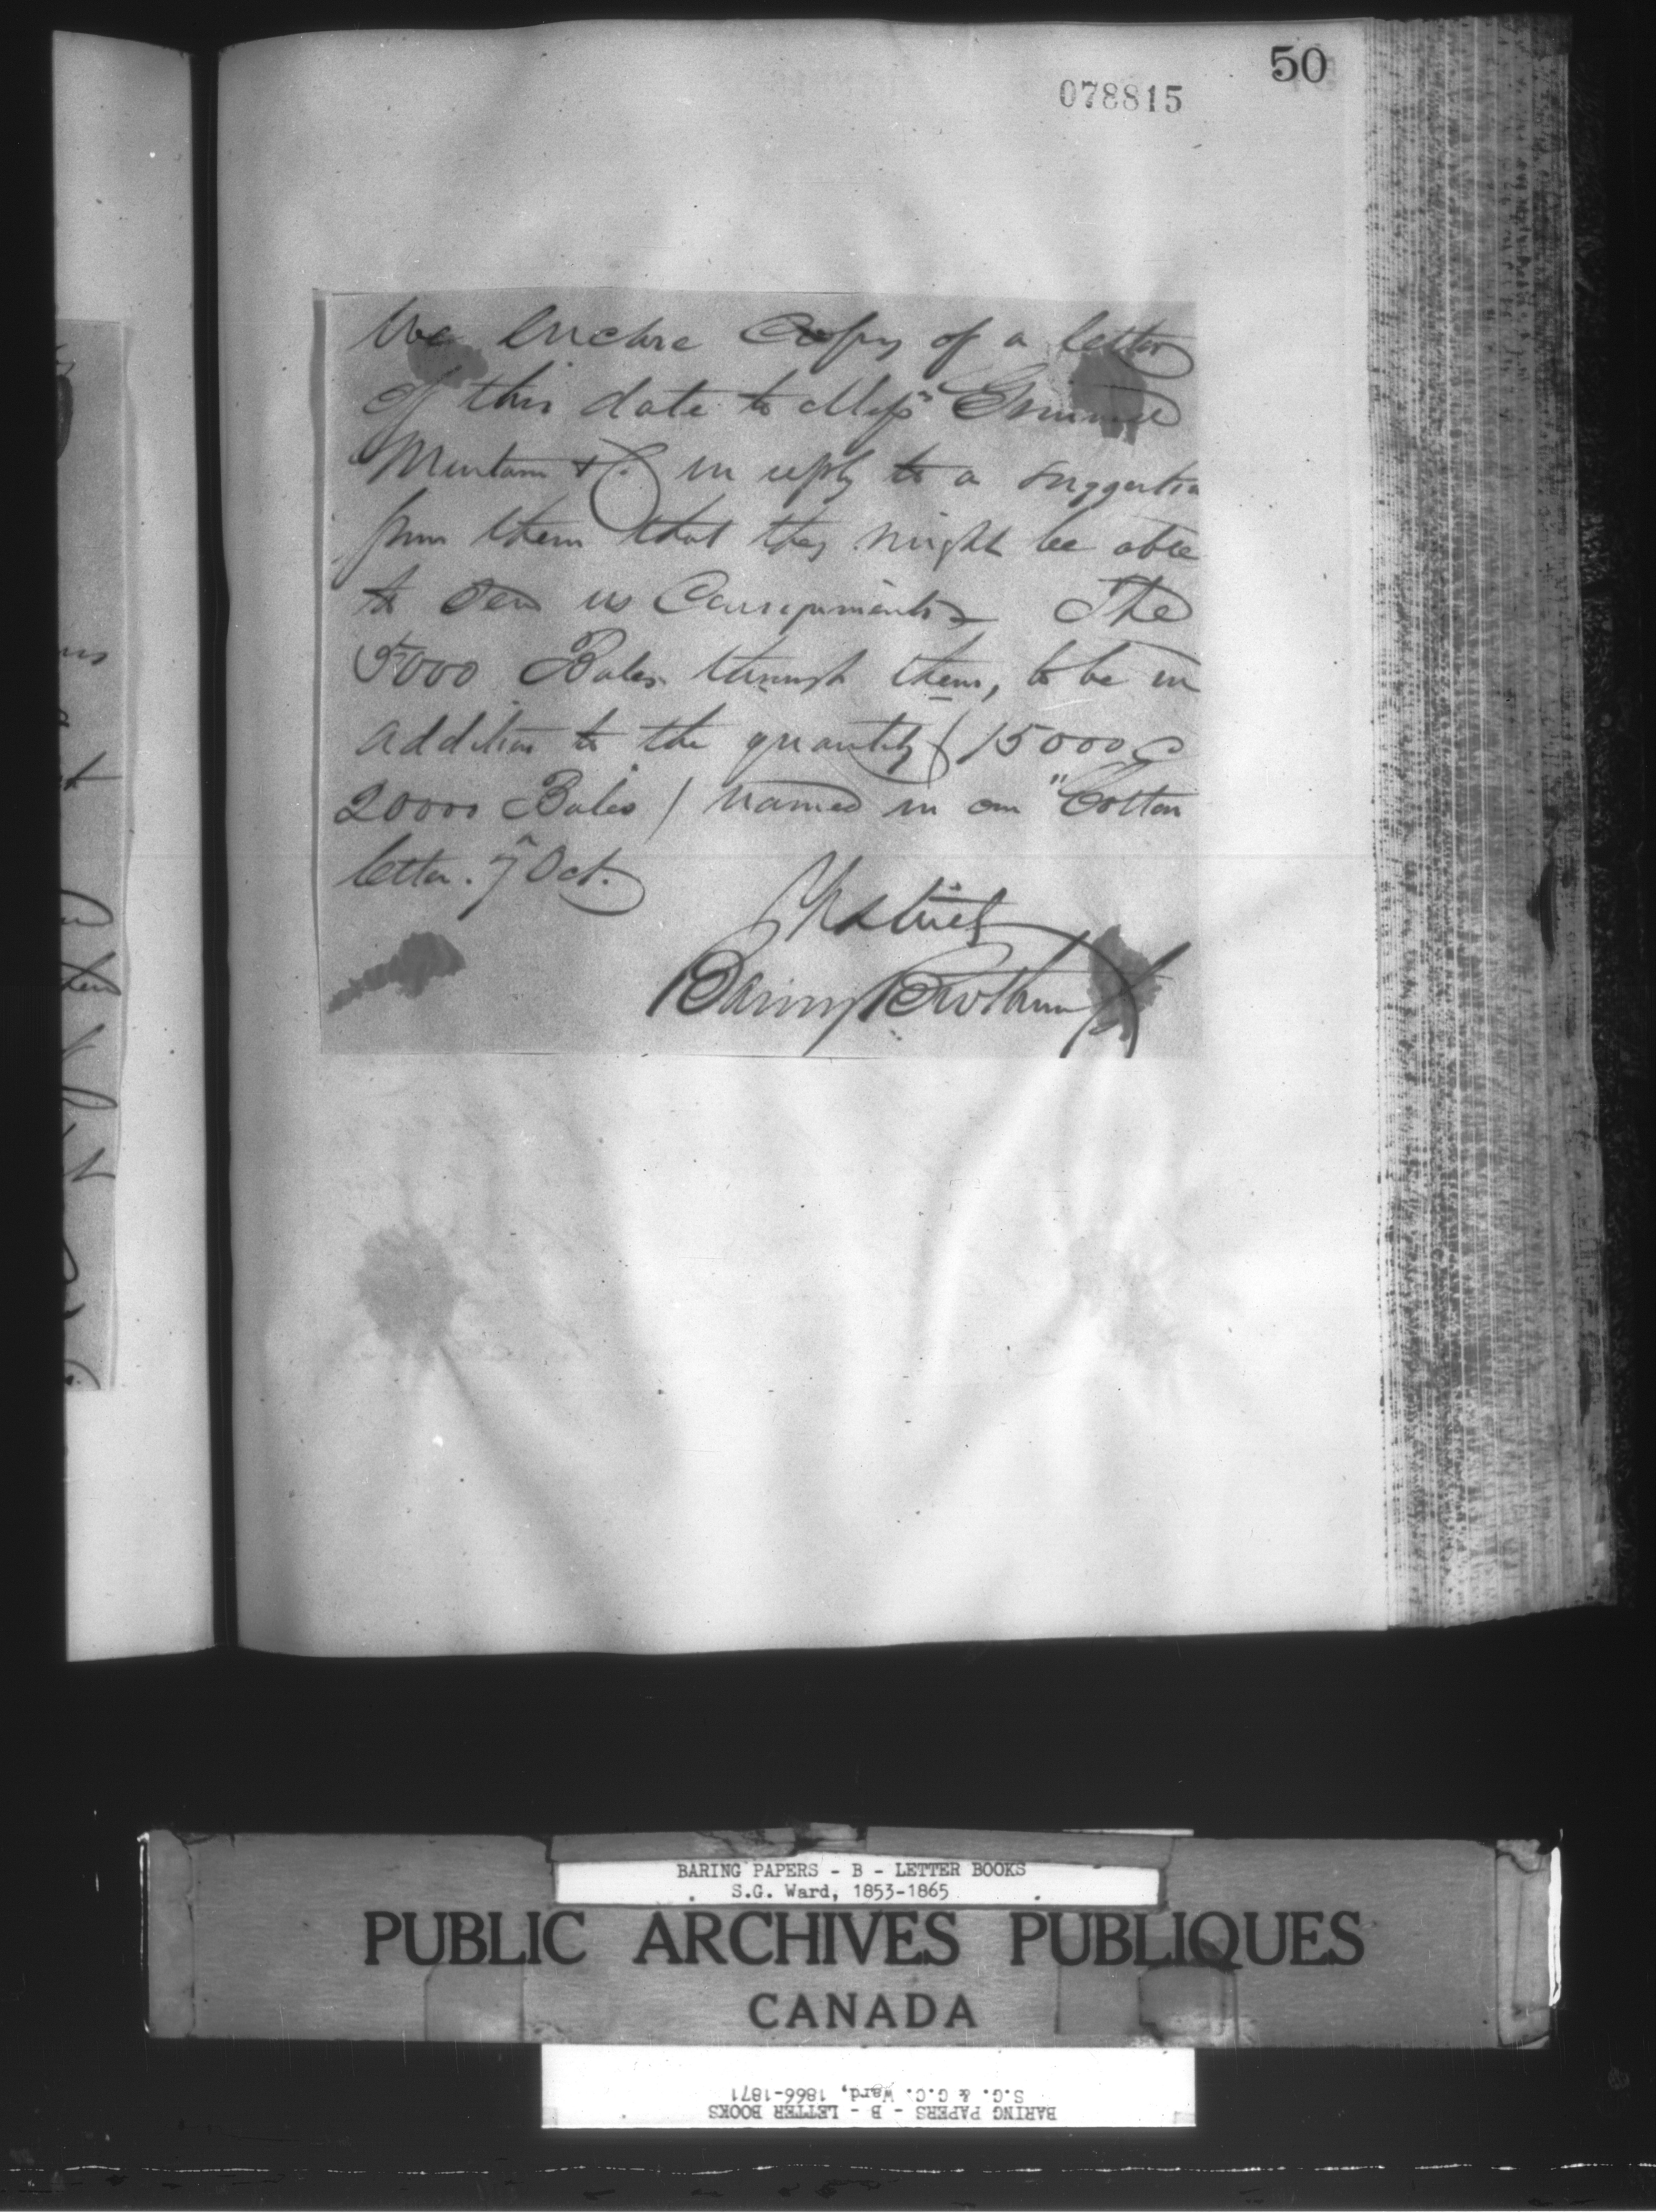 50
078815
We Enclose Copy of a letter
of this date to Mess<sup>rs</sup> Grinnell
Minturn & Co in reply to a suggestion
from them that they might be able
to send us Consignments The
5000 Bales through them, to be in
addition to the quantity (15000 @
20000 Bales) named in our "Cotton
letter. 7 Oct.
Yrs truly
Baring Brothers & Co
BARING PAPERS - B - LETTER BOOKS
S.G. Ward, 1853-1865
PUBLIC ARCHIVES PUBLIQUES
CANADA
BARING PAPERS - B - LETTER BOOKS
S.G. & G.C. Ward, 1866-1871